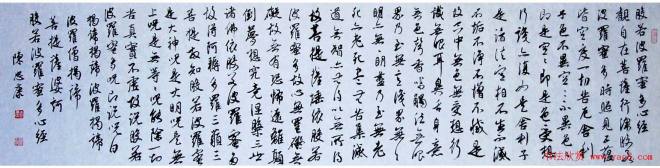 般若波羅蜜多心經
觀自在菩薩行深般若
波羅蜜多時照見五蘊
皆空度一切苦厄舍利
子色不異空空不異色
色即是空空即是色受想
行識亦復如是舍利子
是諸法空相不生不滅
不垢不淨不增不減是
故空中無色無受想行
識無眼耳鼻舌身意
無色聲香味觸法無眼
界乃至無意識界無無
明亦無無明盡乃至無老
死亦無老死盡無苦集滅
道無智亦無得以無所得
故菩提薩埵依般若
波羅蜜多故心無罣礙無
罣礙故無有恐怖遠離顛
倒夢想究竟涅槃三世
諸佛依般若波羅蜜多
故得阿耨多羅三藐三
菩提故知般若波羅蜜多
是大神咒是大明咒是無
上咒是無等等咒能除一切
苦真實不虛故說般若
波羅蜜多咒即說咒曰
揭諦揭諦波羅揭諦
波羅僧揭諦
菩提薩婆訶
般若波羅蜜多心經
陳忠康
书法欣赏
www.yac8.com